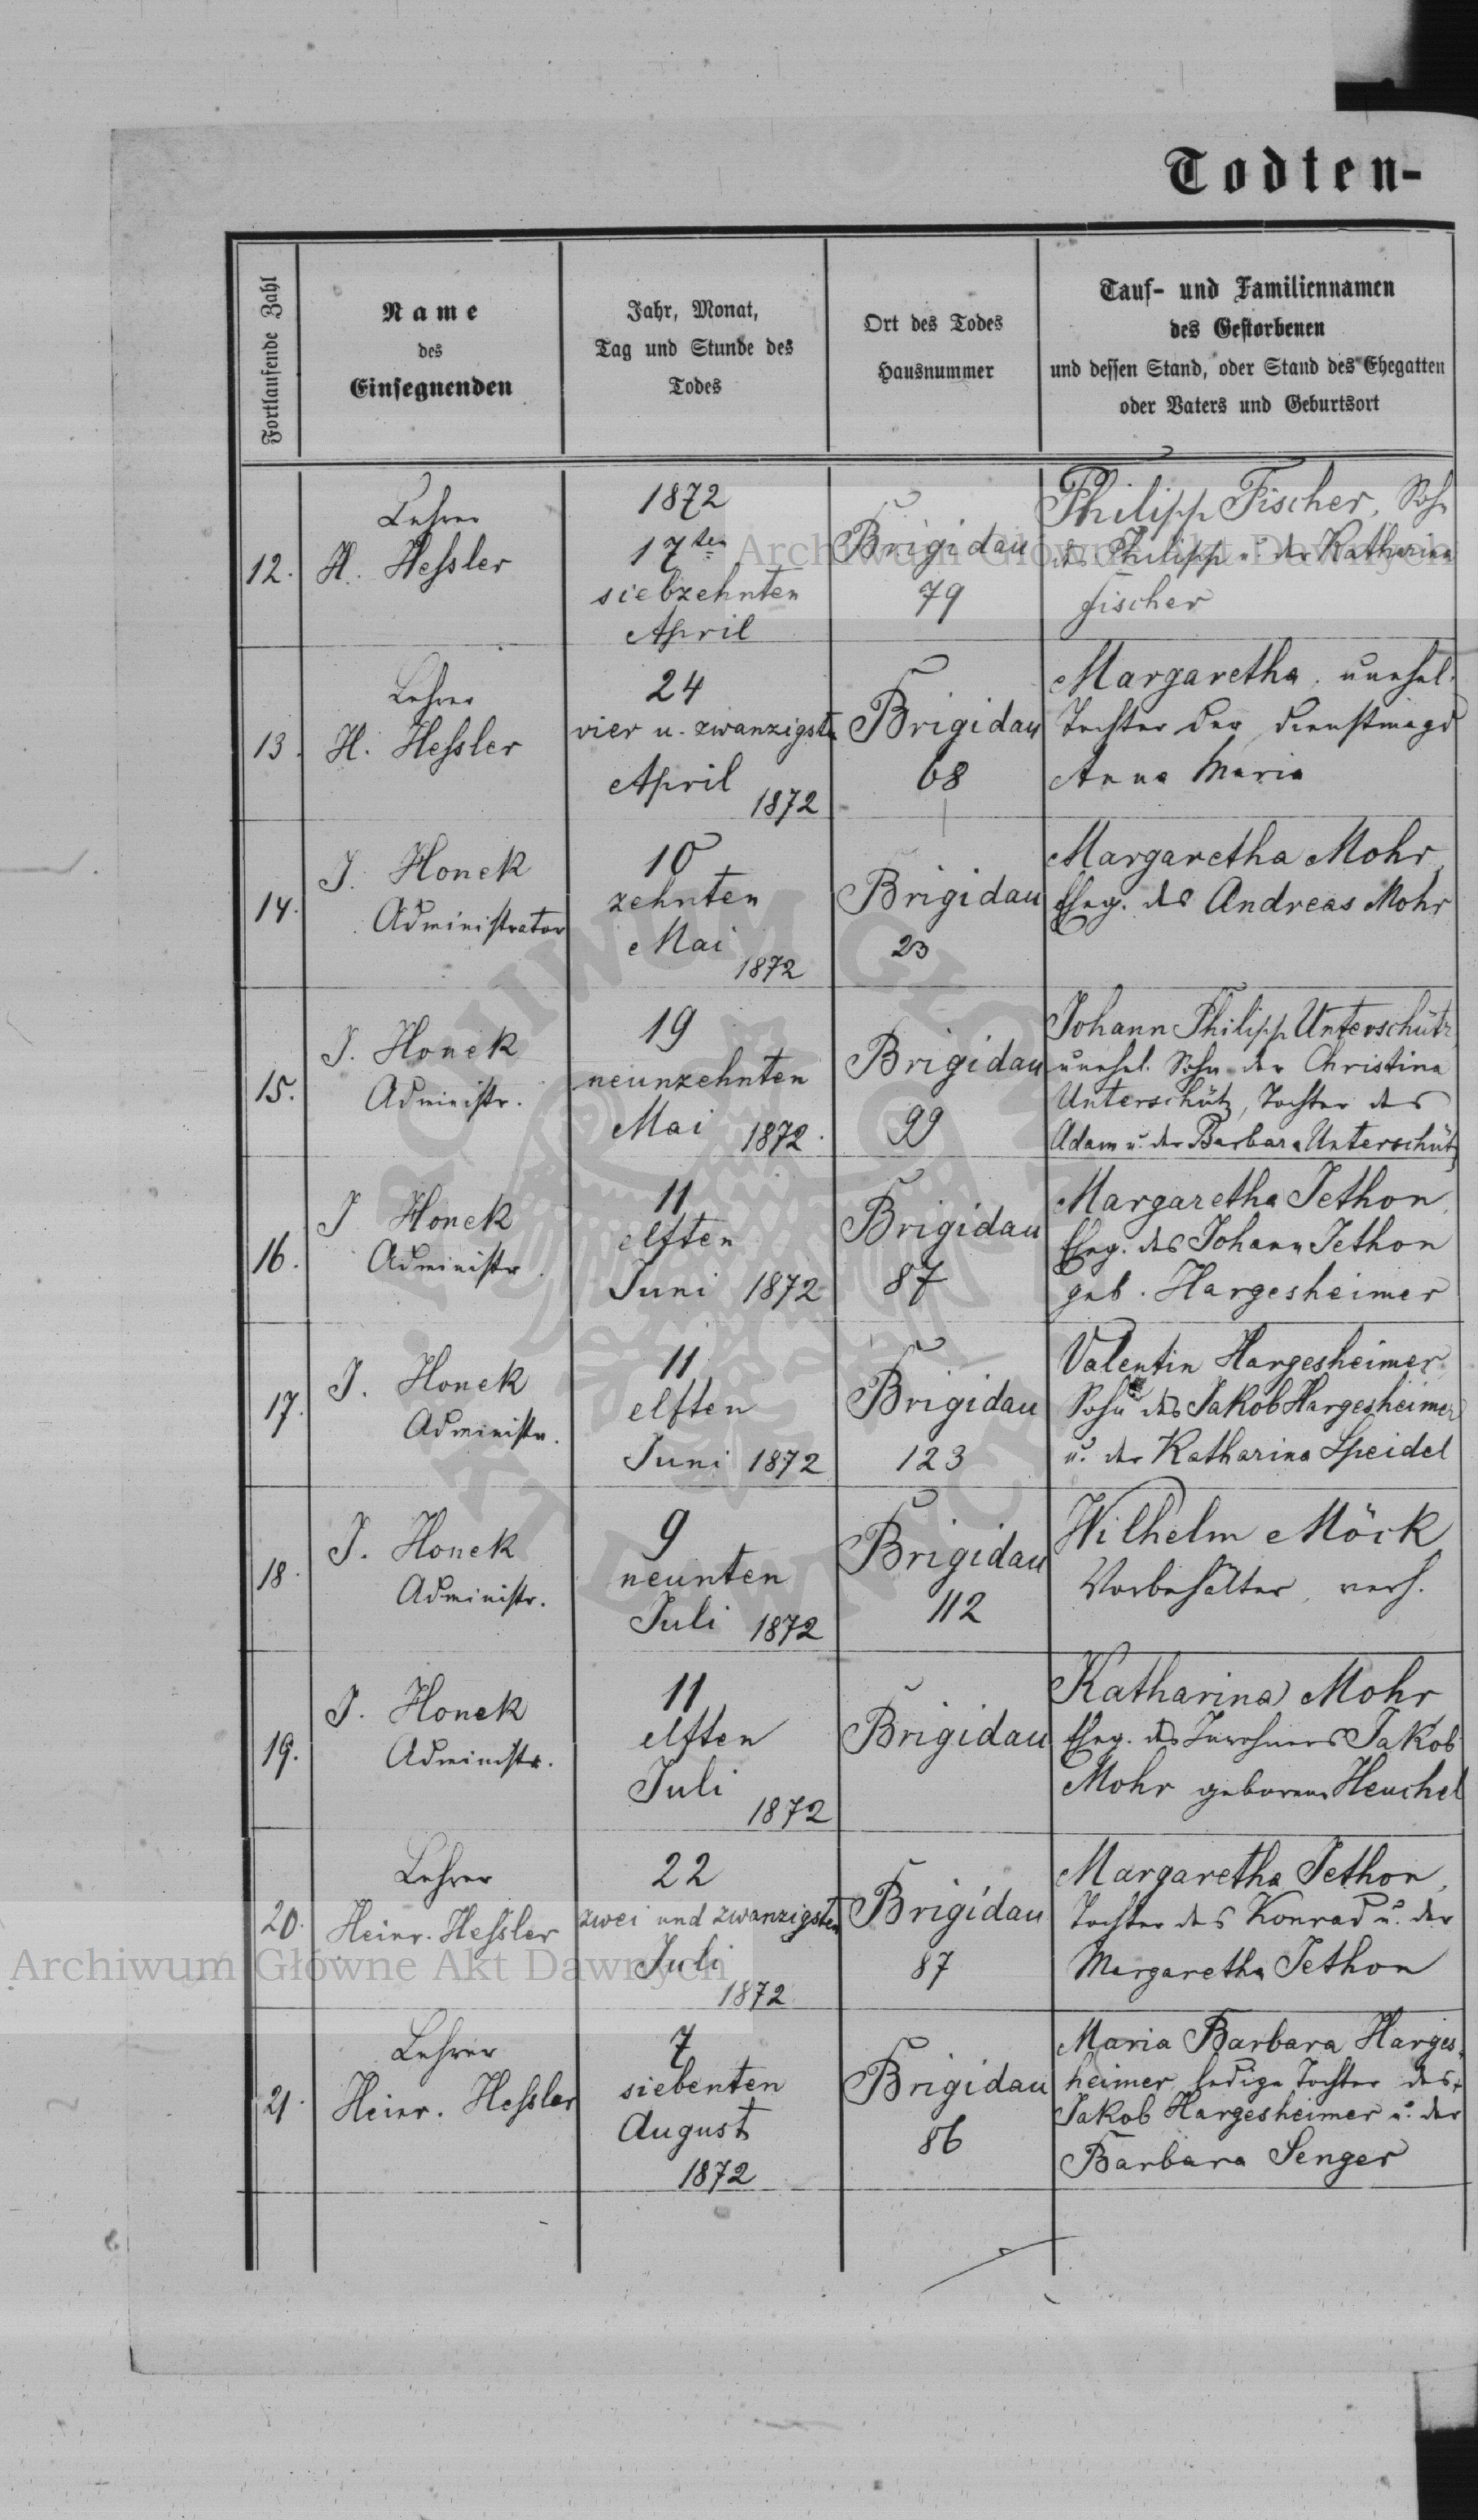 Todten-
Fortlaufende Zahl
Name
des
Einsegnenden
Jahr, Monat,
Tag und Stunde des
Todes
Ort des Todes
Hausnummer
Tauf- und Familiennamen
des Gestorbenen
und dessen Stand, oder Stand des Ehegatten
oder Vaters und Geburtsort
12.
Lehrer
H. Heſsler
1872
17ten
siebzehnten
April
Brigidau
79
Philipp Fischer, Sohn
des Philipp u. der Katharina
Fischer
13.
Lehrer
H. Heſsler
24
vier u. zwanzigsten
April
1872
Brigidau
68
Margaretha, unehel.
Tochter der Dienstmagd
Anna Maria
14.
J. Honek
Administrator
10
zehnten
Mai
1872
Brigidau
23
Margaretha Mohr,
Eheg. des Andreas Mohr
15.
J. Honek
Administr.
19
neunzehnten
Mai 1872.
Brigidau
99
Johann Philipp Unterschütz
unehel. Sohn der Christina
Unterschütz, Tochter des
Adam u. der Barbara Unterschütz
16.
J Honek
Administr.
11
elften
Juni 1872
Brigidau
87
Margaretha Jethon,
Eheg. des Johann Jethon
geb. Hargesheimer
17.
J. Honek
Administr.
11
elften
Juni 1872
Brigidau
123
Valentin Hargesheimer,
Sohn des Jakob Hargesheimer
u. der Katharina Speidel
18.
J. Honek
Administr.
9
neunten
Juli 1872
Brigidau
112
Wilhelm Möck
Vorbehälter, verh.
19.
J. Honek
Administr.
11
elften
Juli
1872
Brigidau
Katharina Mohr
Eheg. des Inwohners Jakob
Mohr geborene Heuchel
20.
Lehrer
Heinr. Heſsler
22
zwei und zwanzigsten
Juli
1872
Brigidau
87
Margaretha Jethon,
Tochter des Konrad u. der
Margaretha Jethon
21.
Lehrer
Heinr. Heſsler
7
siebenten
August
1872
Brigidau
86
Maria Barbara Harges-
heimer, ledige Tochter des
Jakob Hargesheimer u. der
Barbara Senger
Archiwum Główne Akt Dawnych
Archiwum Główne Akt Dawnych